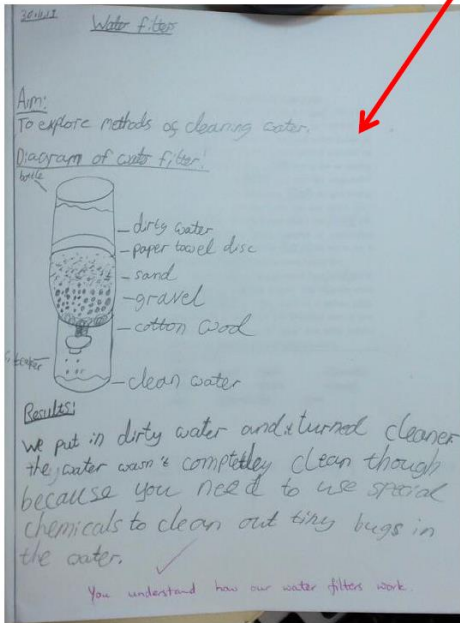 Water filter
Aim:
To explore methods of cleaning water.
Diagram of water filter!
bottle
dirty water
paper towel disc
sand
gravel
cotton wool
beaker
clean water
Results:
we put in dirty water and it turned cleaner
the water wasn't completley clean though
because you need to use special
chemicals to clean out tiny bugs in
the water.
You understand how our water filters work.